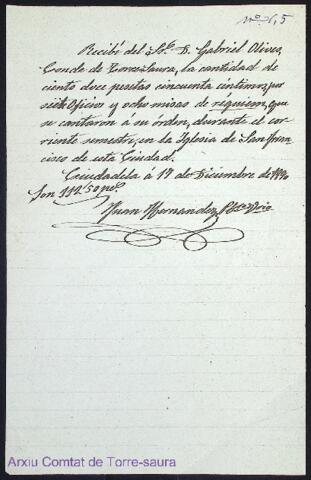 nº 6,5
Recibí del Sr. D. Gabriel Olives,
Conde de Torre-Saura, la cantidad de
ciento doce pesetas cincuenta céntimos, por
siete Oficios y ocho misas de réquiem, que
se cantaron á su órden, durante el cor-
riente semestre, en la Iglesia de San Fran-
cisco de esta Ciudad.
Ciudadela á 19 de Diciembre de
Son 112'50 ps.
Juan Hernandez Pbro.
Arxiu Comtat de Torre-saura